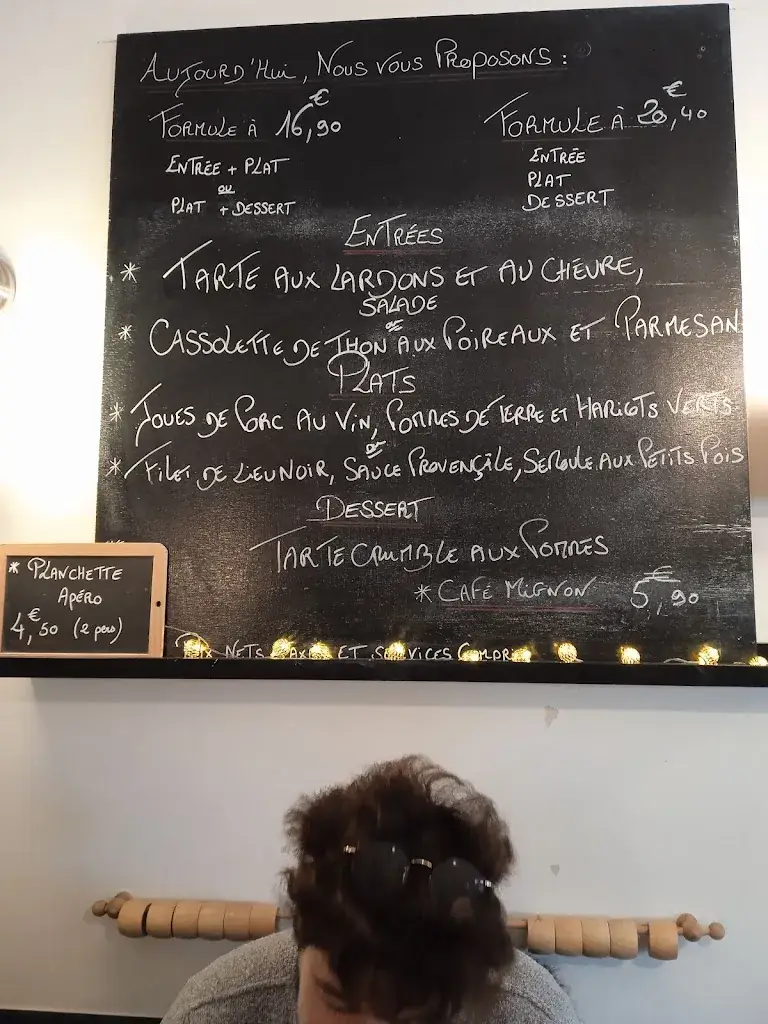 AUJOURD'HUI, NOUS VOUS PROPOSONS :
FORMULE À 16,90 €
ENTRÉE + PLAT
OU
PLAT + DESSERT
FORMULE À 20,40 €
ENTRÉE
PLAT
DESSERT
ENTRÉES
* TARTE AUX LARDONS ET AU CHÈVRE,
SALADE
or
* CASSOLETTE DE THON AUX POIREAUX ET PARMESAN
PLATS
* JOUES DE PORC AU VIN, POMMES DE TERRE ET HARICOTS VERTS
or
* FILET DE LIEU NOIR, SAUCE PROVENÇALE, SEMOULE AUX PETITS POIS
DESSERT
TARTE CRUMBLE AUX POMMES
* CAFÉ MIGNON 5,90 €
* PLANCHETTE
APÉRO
4,50 € (2 pers)
PRIX NETS TAXES ET SERVICES COMPRIS